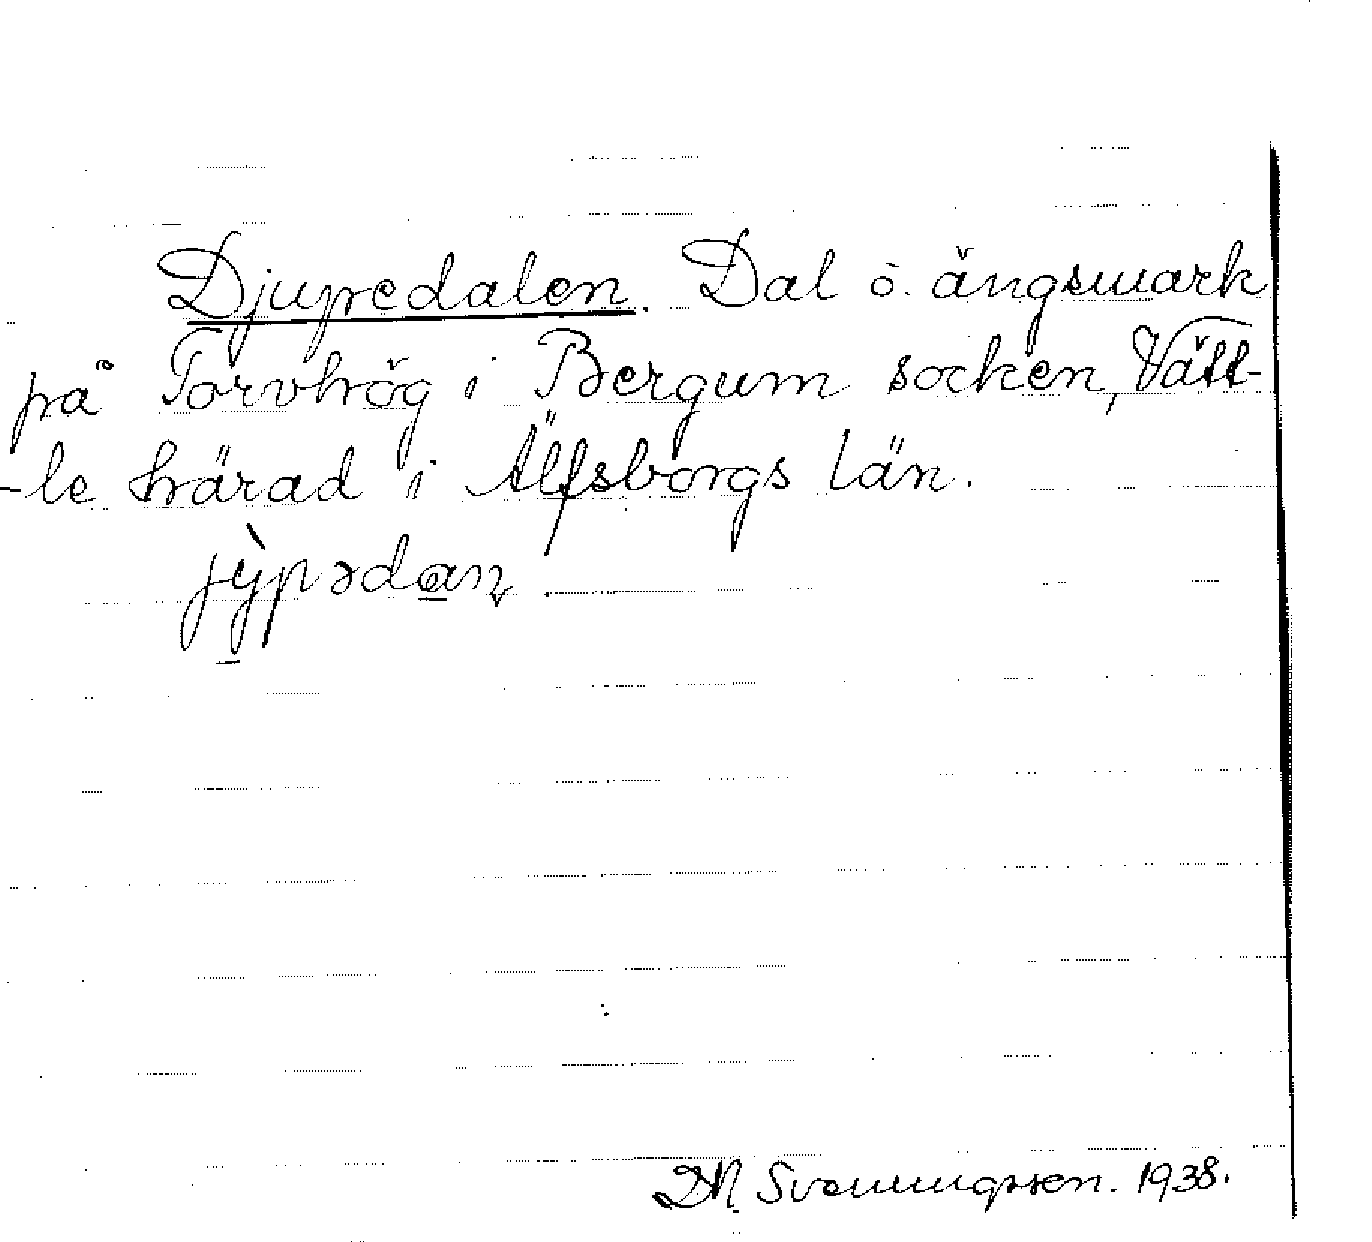 Djupedalen. Dal o. ängsmark
på Torvhög i Bergum socken, Vätt-
-le härad i Älfsborgs län.
jỳpədan
D.N. Svenningsson. 1938.